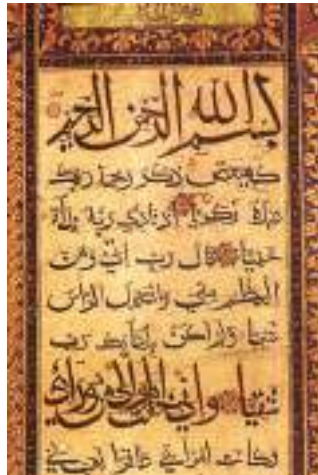 بسم الله الرحمن الرحيم
كهيعص ذكر رحمة ربك
عبده زكريا اذ نادى ربه نداء
خفيا قال رب اني وهن
العظم مني واشتعل الراس
شيبا ولم اكن بدعائك رب
شقيا واني خفت الموالي من ورائي
وكانت امراتي عاقرا فهب لي